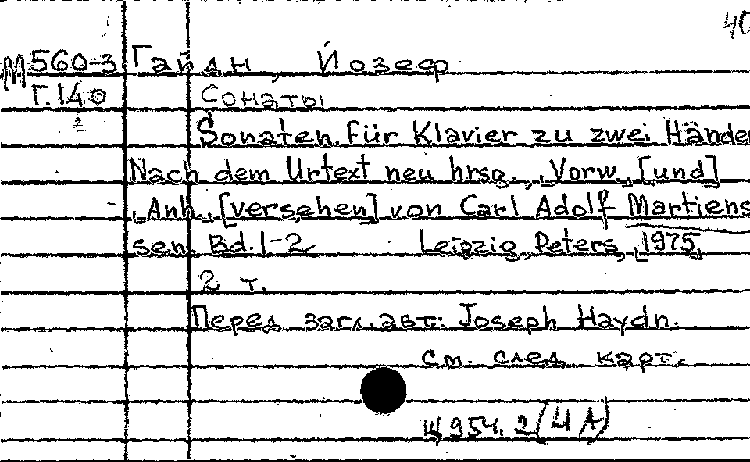 40
М560-3 Гайдн, Йозеф
Г.140 Сонаты
2 Sonaten für Klavier zu zwei Hände
Nach dem Urtext neu hrsg., Vorw. [und]
Anh. [versehen] von Carl Adolf Martiens
sen. Bd. 1-2 Leipzig, Peters, 1975.
2 т.
Перед загл. авт.: Joseph Haydn.
см. след. карт.
Щ954.2(4А)